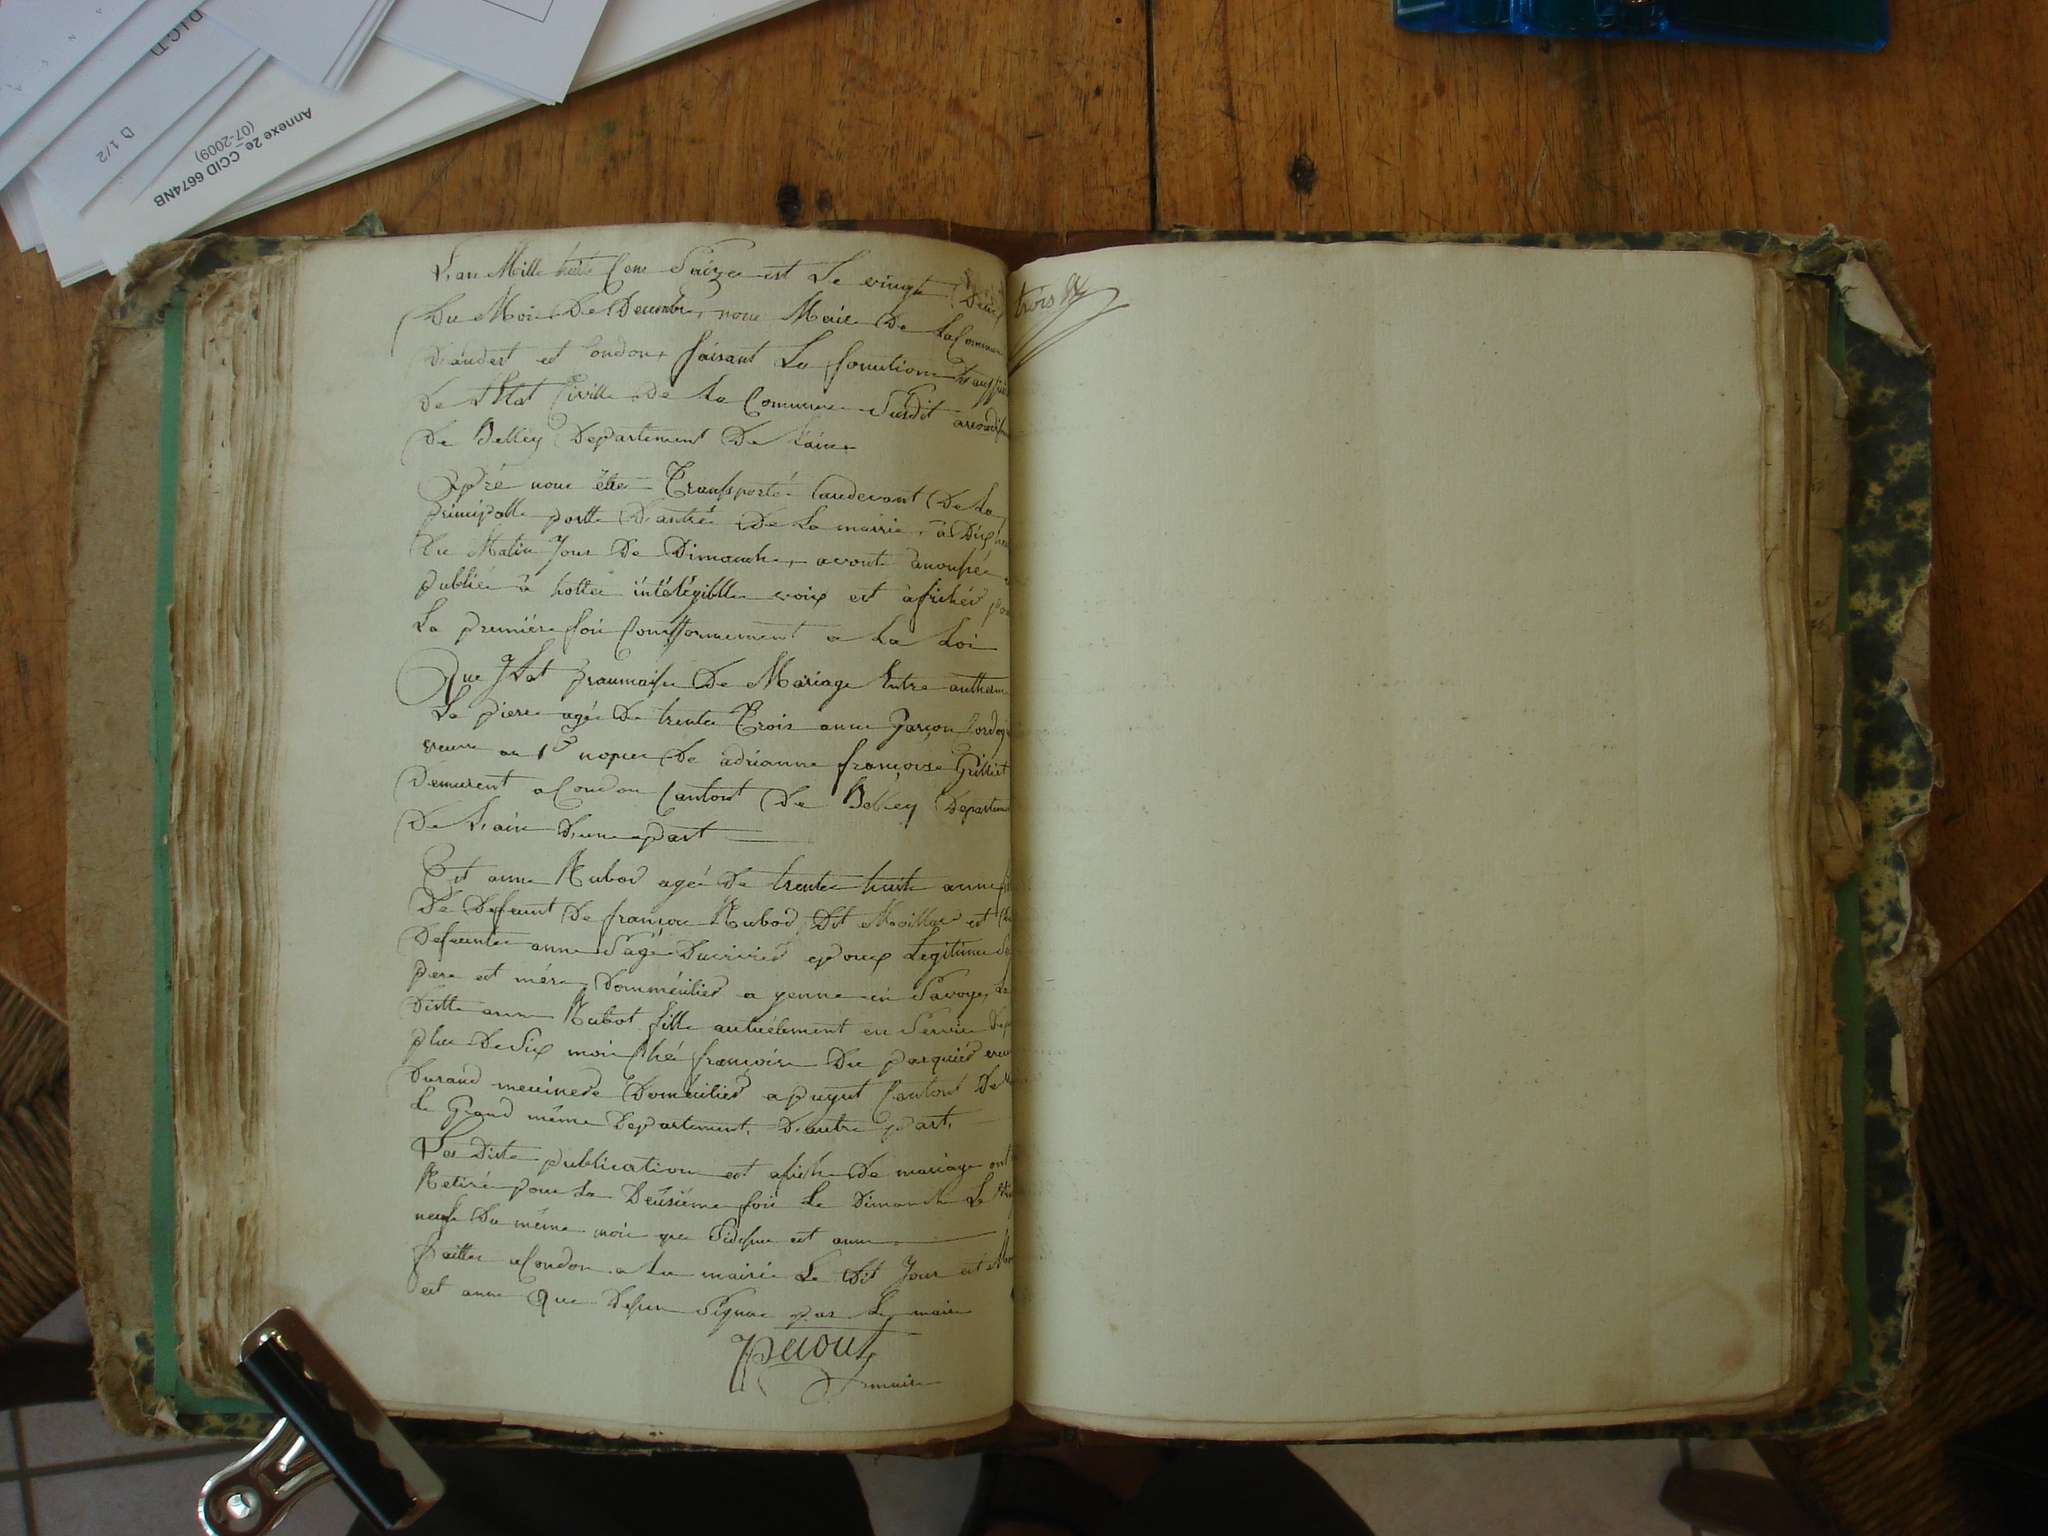 DICD
D 1/2
Annexe 2e CCID 6674NB
(07-2009)
L'an Mille huite Cent Seize est Le vingt Deux
Du Moi De Decembre, nous Maire De La Commun
D'andert est Condon, faisant La fonction
De L'Etat Civille De La Commune Susdit
De Belley Departement De L'ain
Apré nous être Transporté audevant De La
principalle portte D'antrée De La mairie, à Dix
Du Matin Jour De Dimanche, avont anonsée
publiée à hotte intélégiblle voix est àfichés
La premiére foi Conformement a La Loi
Que J Lat praumaise De Mariage Entre
La pierre agée De trente Trois anne Garçon
veuve au 1er nopce De adrianne françoise Gilliet
Demurent a Condon Cantont De Belley Departem
De L'ain D'une part
Est anne Rubod agée De trente huite anne
De Defeunt De françoi Rubod Dit Maillar est
Defeunte anne Sage Ducivied epoux Legitime
pere est mére Domméciliés a yenne en Savoye,
Ditte anne Rubot fille autuélement en Service
plus De Six moi Ché françoise Du parquiés
Durand Domiciliés a pugnt Cantont De
Le Grand même Departement, D'autre part,
La Dite publication est afiche De mariage ont
Retiré pour La Deüsiéme foi Le Dimanche Le
neufe Du même moi que Sidesu est anne
faitte a Condon a La mairie Le Dit Jour est
est anne Que Desu Signé par Le maire
maire
trois